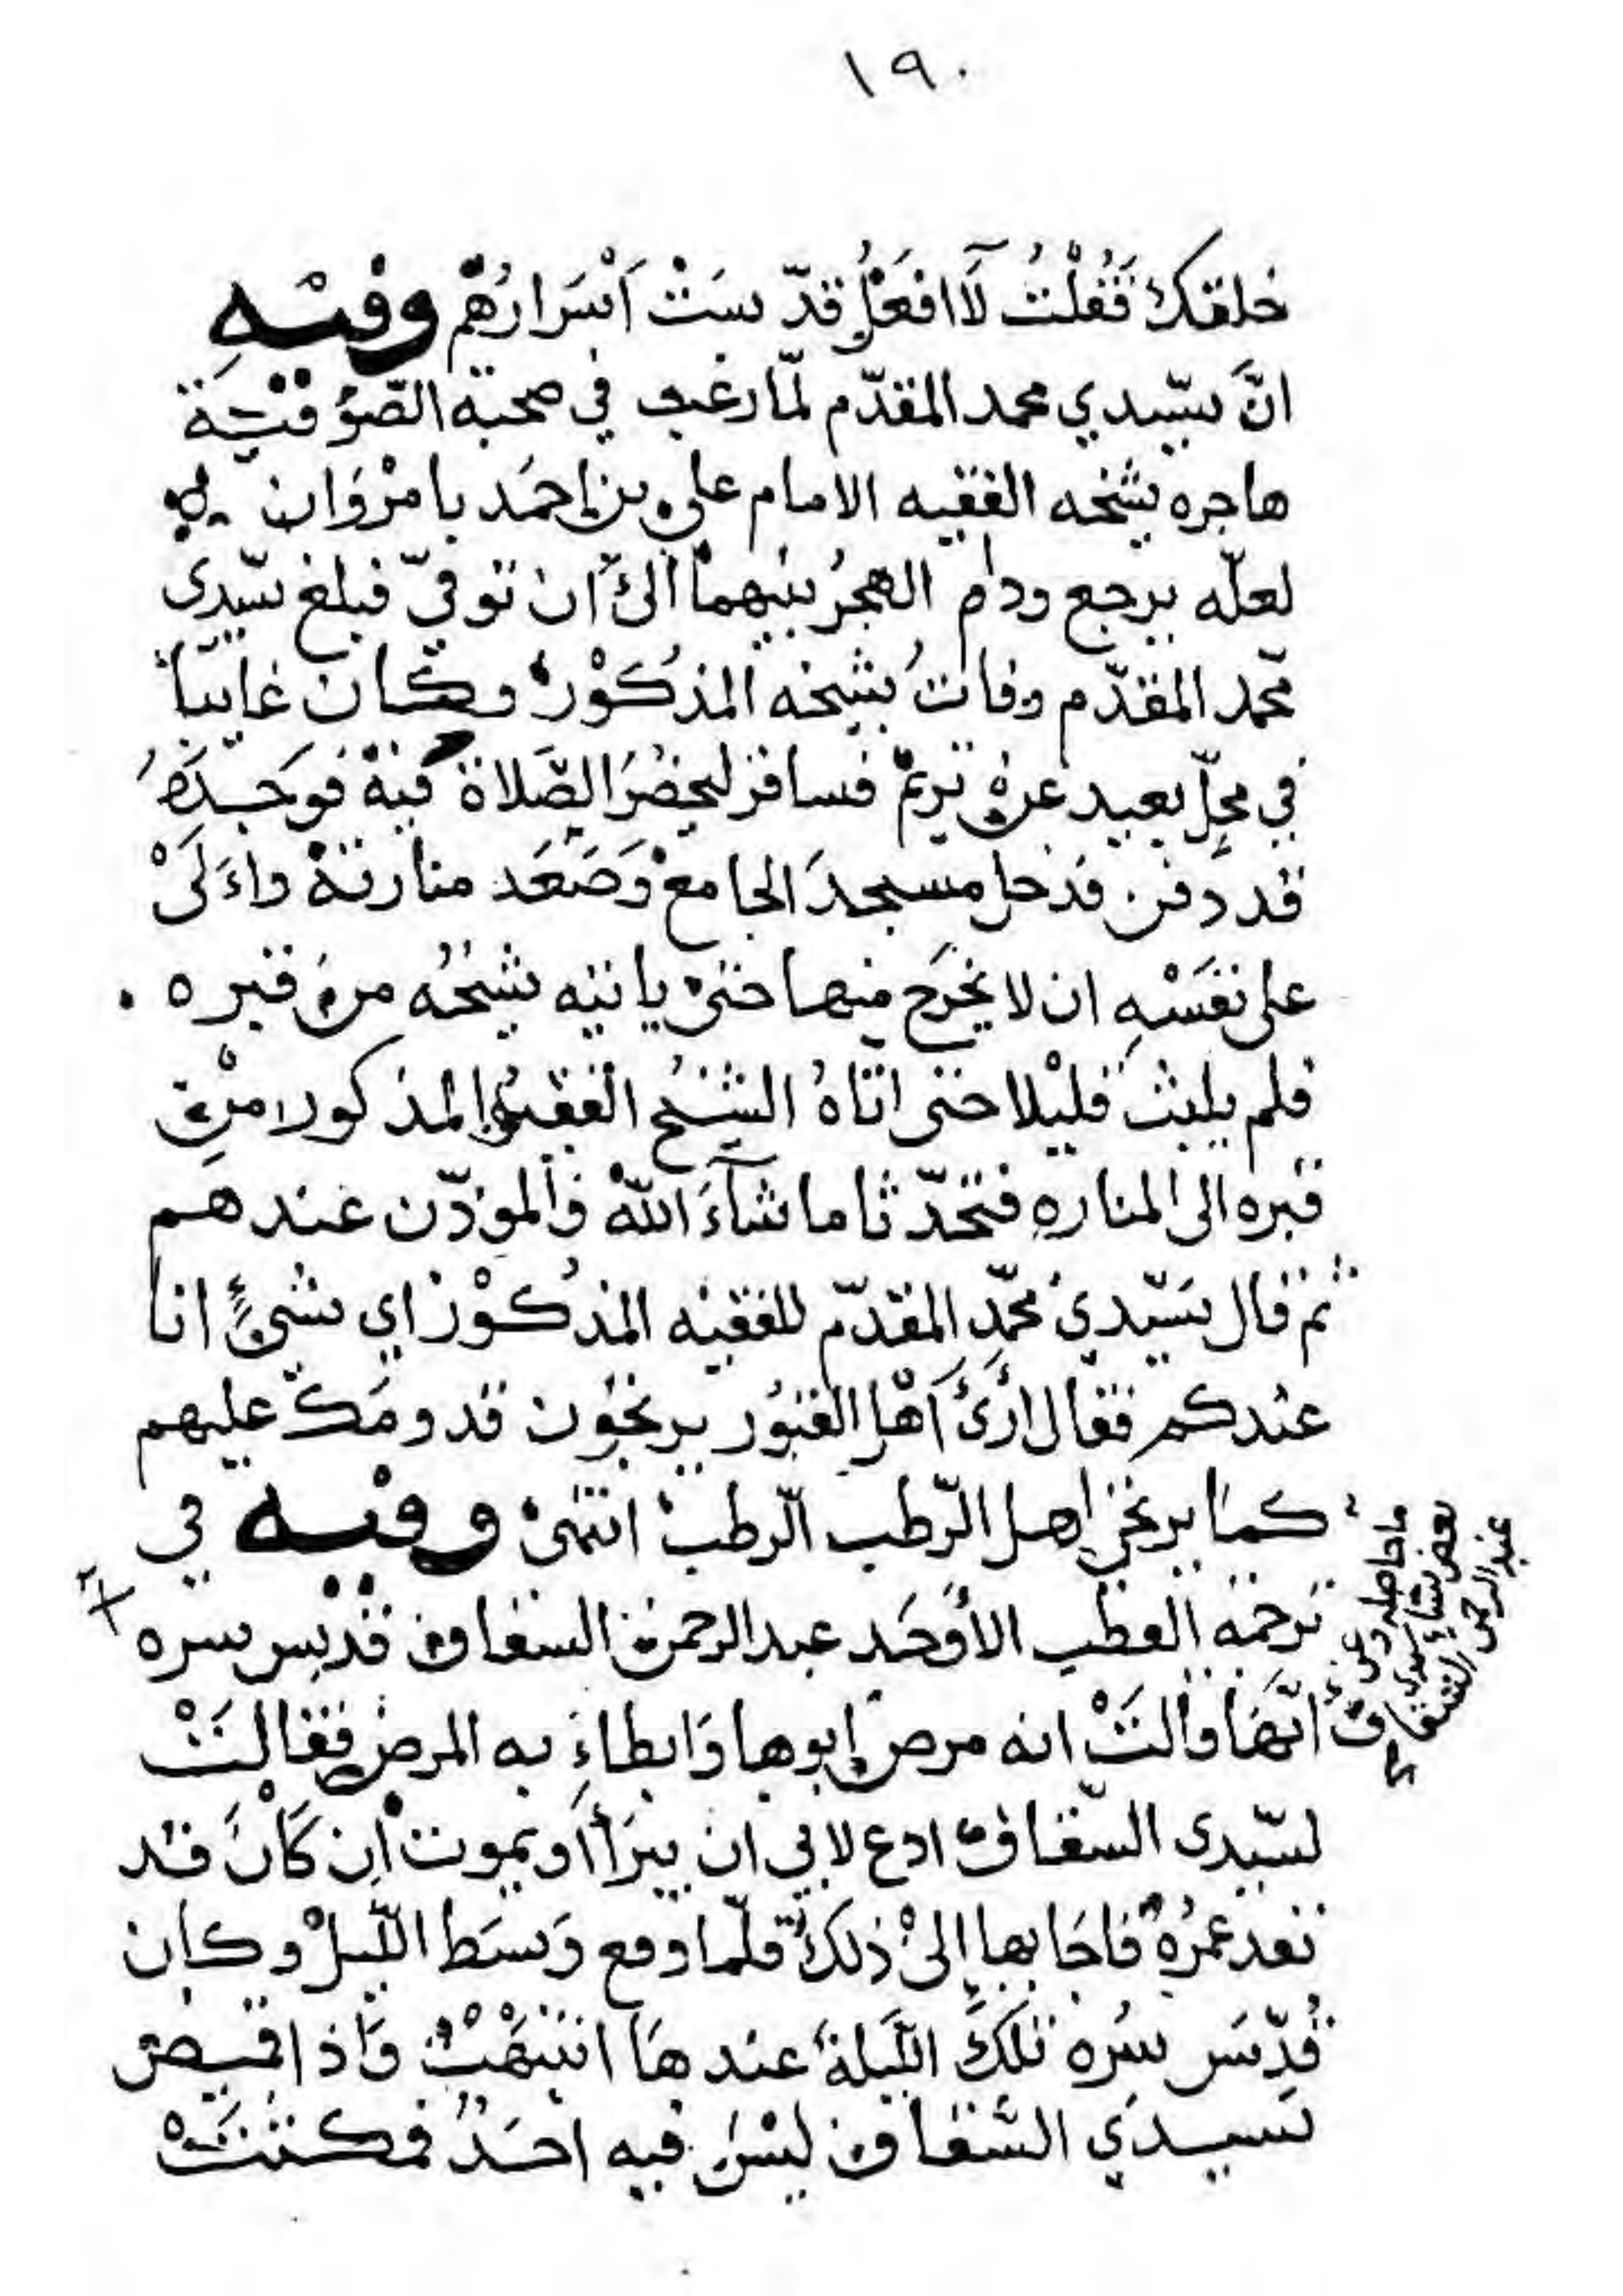 ١٩٠
خلقك فَقُلْتُ لَا افعَلُ قدّ سَتْ اَسْرَارُهُمْ وفيْهِ
انَّ سيّيدي محمد المقدّم لمّا رغب في صحبة الصّوُفيّة
هاجره شيخه الفقيه الامام علي بن احمَد بامرْوَان
لعلّه يرجع ودام الهجرُ بينهما الىَ ان توفيّ فبلغ سيّدى
محمد المقدّم وفاتُ شيخه المذكوْر وكان غايباً
في محِلّ بعيد عن تريمْ فسافر ليحضُرَ الصَّلاة فيهْ فوجدَهُ
قد دفن فدخل مسجدَ الجامعْ وَصَعَد منارتهْ واءَلَىْ
على نفَسْهِ ان لا يخرَج منها حتىْ ياتيه شيْخُه من قبره .
فلم يلبث قليْلا حتى اتاهُ الشيْخُ الفقيهُ المذكور منْ
قبره الى المنارهِ فتحدّ ثا ما شآءَ اللهْ والموذّن عندهم
ثم قال سَيّدي محمّد المقدّم للفقيه المذكوْر اي شئٍ انا
عندكم فقال ارَىَ اَهْل القبوُر يرتجوُن قدومَكَ عليهم
كما يرتجي اهل الرّطب الرّطبْ انتهىْ وفيْه في
ترجمة القطب الأوحَد عبدالرحمن السقاف قدّس سره
ما حاصله وعن بعض نساء سيدي عبد الرحمن السقاف
انّهَا قالتْ انه مرض ابوها وَابطاءَ به المرض فقالتْ
لسّيدى السّقاف ادع لابي ان يبرَأ او يموت ان كَانَ قد
نفد عمرُهُ فاجَابها إلىْ ذلكَ فلمّا وقع وَسَط اللّيلْ وكان
قُدّسَ سُره تلكَ اللّيلة عندهَا انتبهْتُ وَاذا قميص
سيدَي السَّقاف ليْسَ فيه احَدٌ فمكثتْ